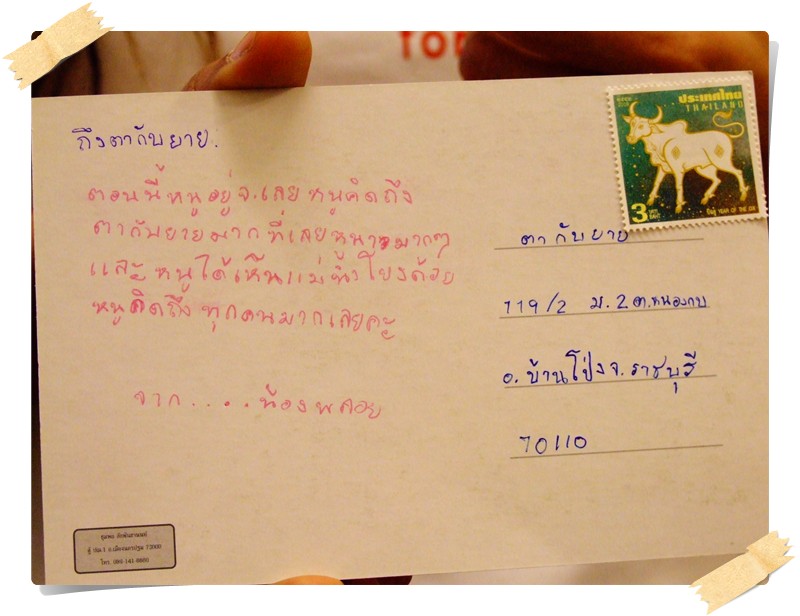 ประเทศไทย
THAILAND
3 บาท
BAHT
ปีฉลู YEAR OF THE OX
ถึงตากับยาย.
ตอนนี้หนูอยู่จ.เลย หนูคิดถึง
ตากับยายมาก ที่เลยหนาวมากๆ
และ หนูได้เห็นแม่น้ำโขงด้วย
หนูคิดถึง ทุกคนมากเลยคะ
จาก.... น้องพลอย
ตา กับยาย
119/2 ม.2 ต.หนองกบ
อ.บ้านโป่ง จ.ราชบุรี
70110